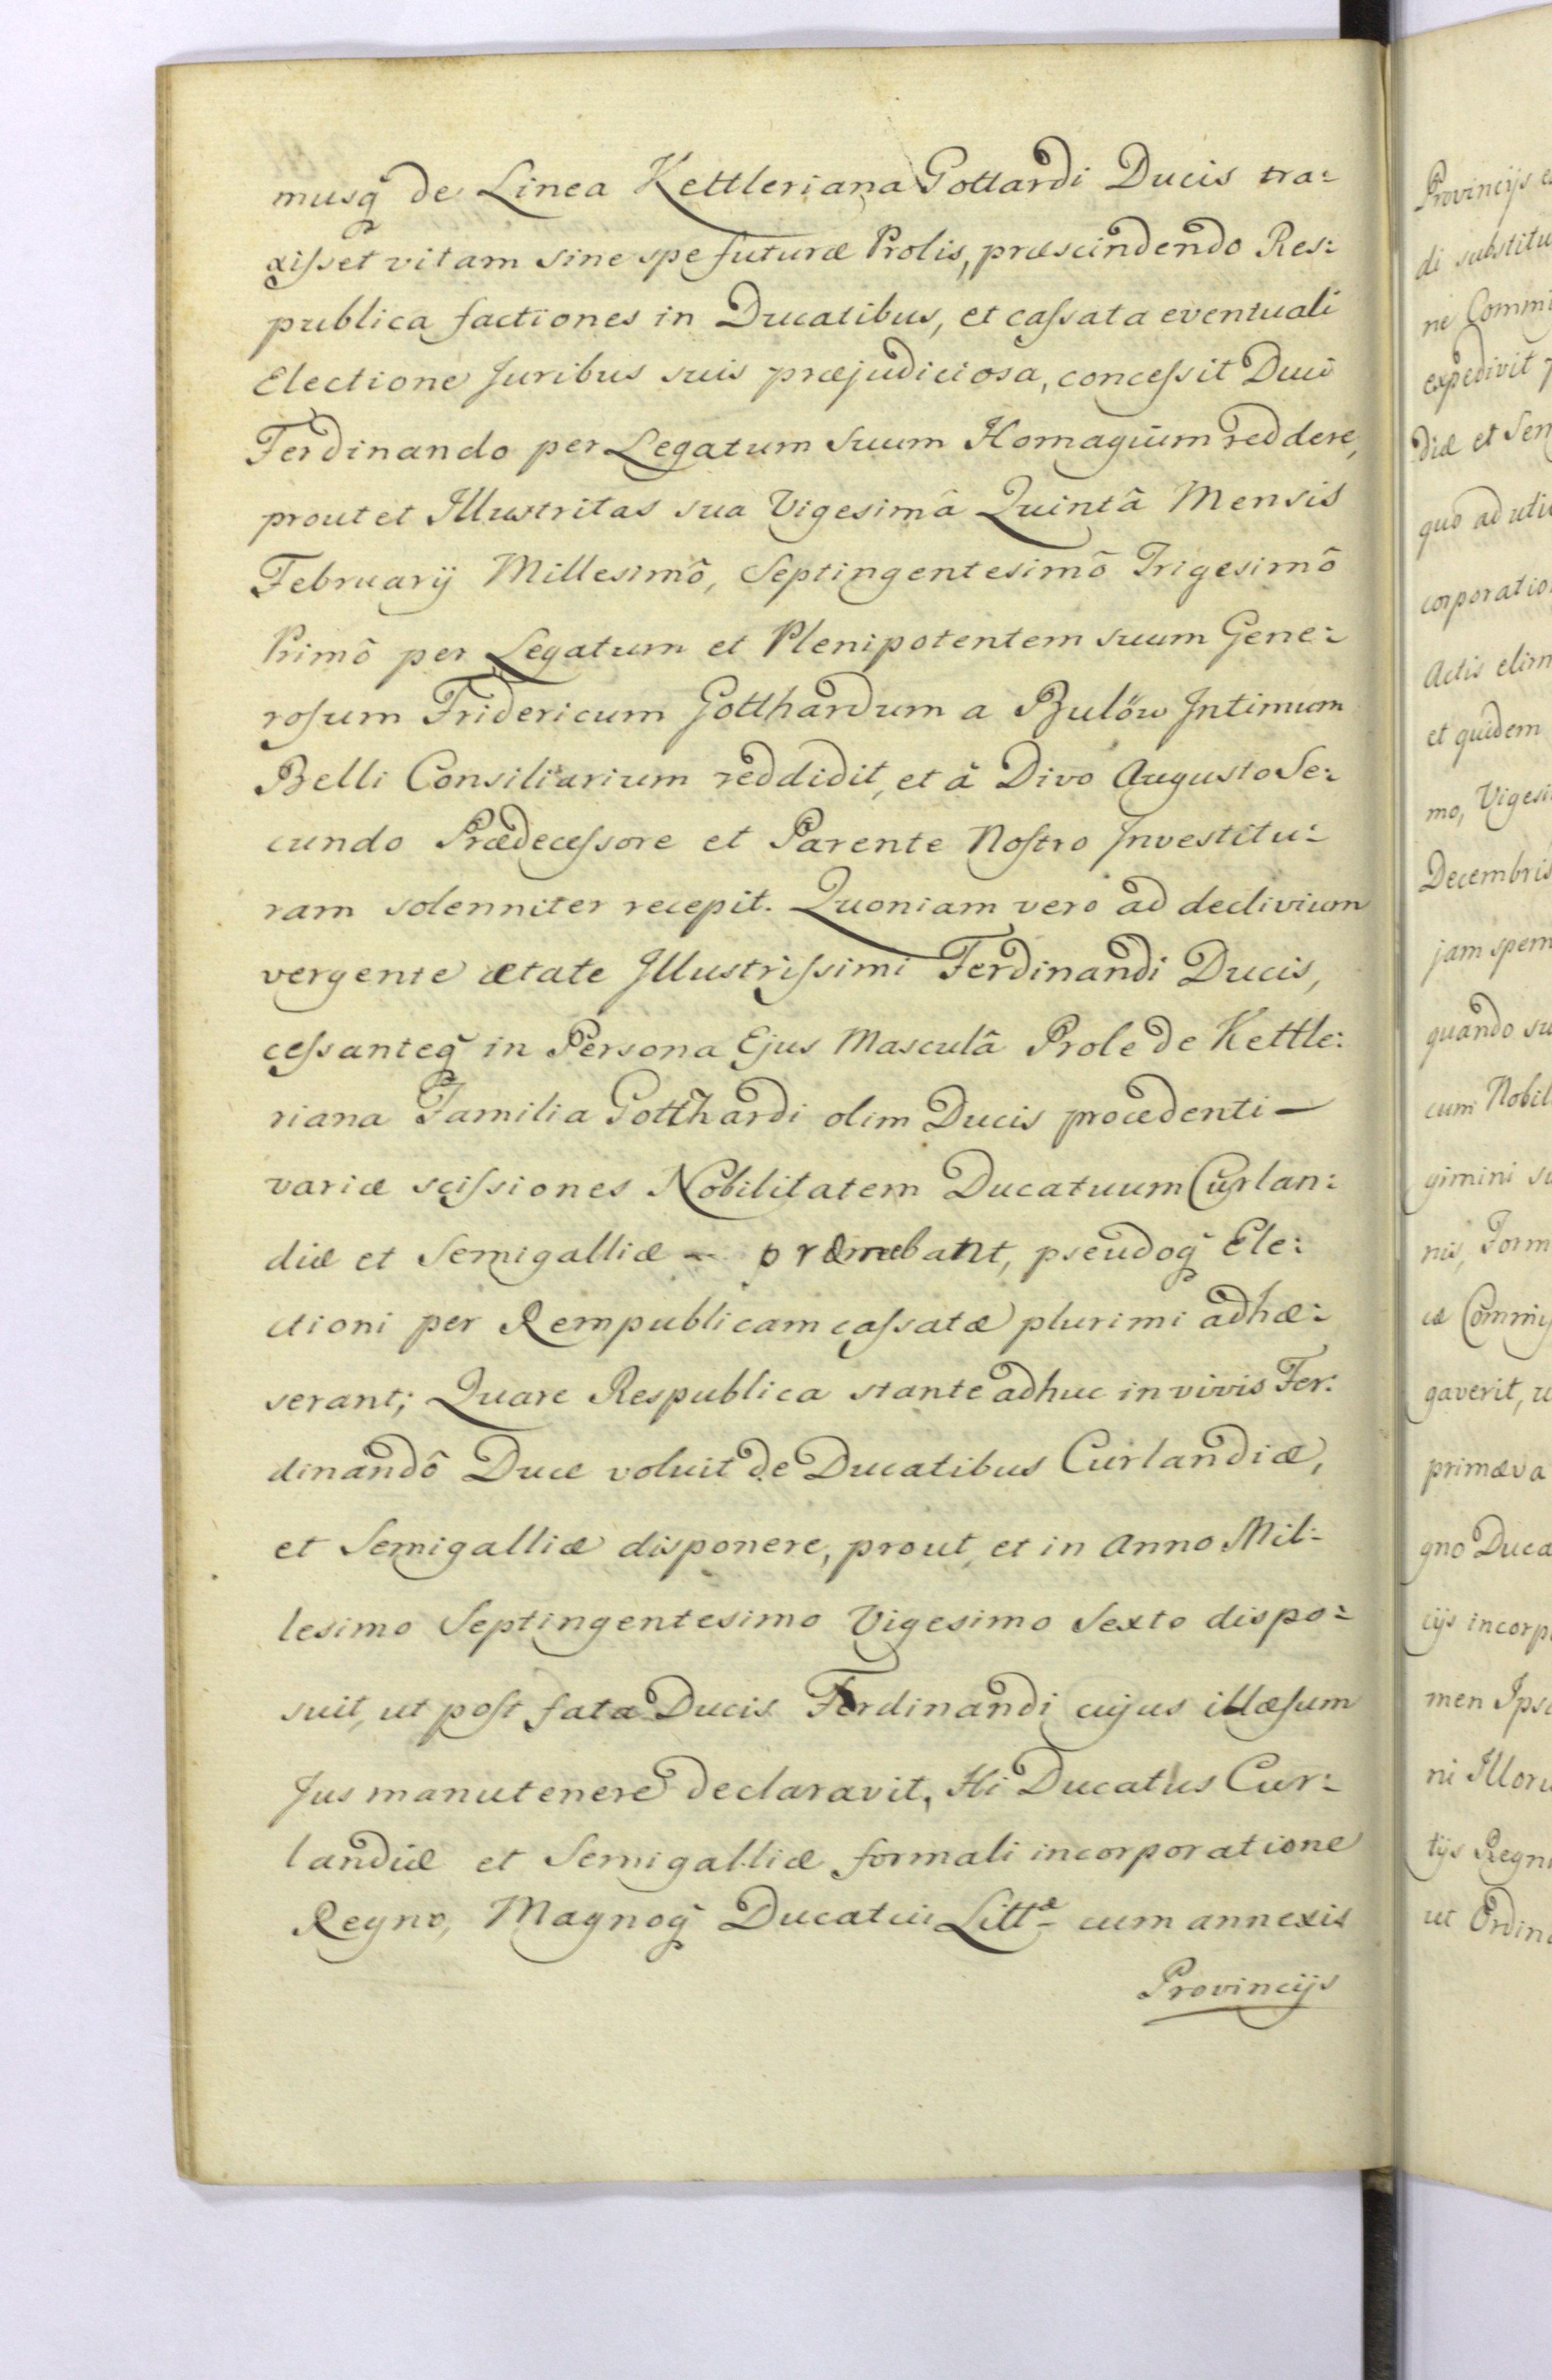 musq̃ de Linea Kettleriana Gottardi Ducis tra=
xiſset vitam sine spe futuræ Prolis, præscindendo Res=
publica factiones in Ducatibus, et caſsata eventuali
Electione Juribus suis præjudiciosa, conceſsit Duci
Ferdinando per Legatum Suum Homagium reddere,
prout et Illustritas sua Vigesimâ Quintâ Mensis
Februarij Millesimô, Septingentesimô Trigesimô
Primô per Legatum et Plenipotentem suum Gene=
roſum Fridericum Gotthardum a Bulöw Intimum
Belli Consiliarium reddidit, et â Divo Augusto Se=
cundo Prædeceſsore et Parente Noſtro Investitu=
ram solenniter recepit. Quoniam vero ad declivium
vergente ætate Illustriſsimi Ferdinandi Ducis,
ceſsanteq̃ in Persona Ejus Masculâ Prole de Kettle=
riana Familia Gotthardi olim Ducis procedenti —
variæ sciſsiones Nobilitatem Ducatuum Curlan=
diæ et Semigalliæ — premebant, pseudoq̃ Ele=
ctioni per Rempublicam caſsatæ plurimi adhæ=
serant; Quare Respublica stante adhuc in vivis Fer=
dinandô Duce voluit de Ducatibus Curlandiæ,
et Semigalliæ disponere, prout et in Anno Mil=
lesimo Septingentesimo Vigesimo Sexto dispo=
suit, ut poſt fata Ducis Ferdinandi cujus illæſum
Jus manutenere declaravit, Hi Ducatus Cur=
landiæ et Semigalliæ formali incorporatione
Regno, Magnoq̃ Ducatui Littæ cum annexis
Provincijs
Provincijs
di substitu
ne Commi
expedivit
diæ et Sem
quo ad uti
corporatio
Actis elim
et quidem
mo, Vigesi
Decembris
jam spem
quando su
cum Nobil
gimini su
nis, Form
iæ Commiſ
gaverit, u
primæva
gno Duca
cijs incorp
men Ipso
ni Illoru
tijs Regni
ut Ordina